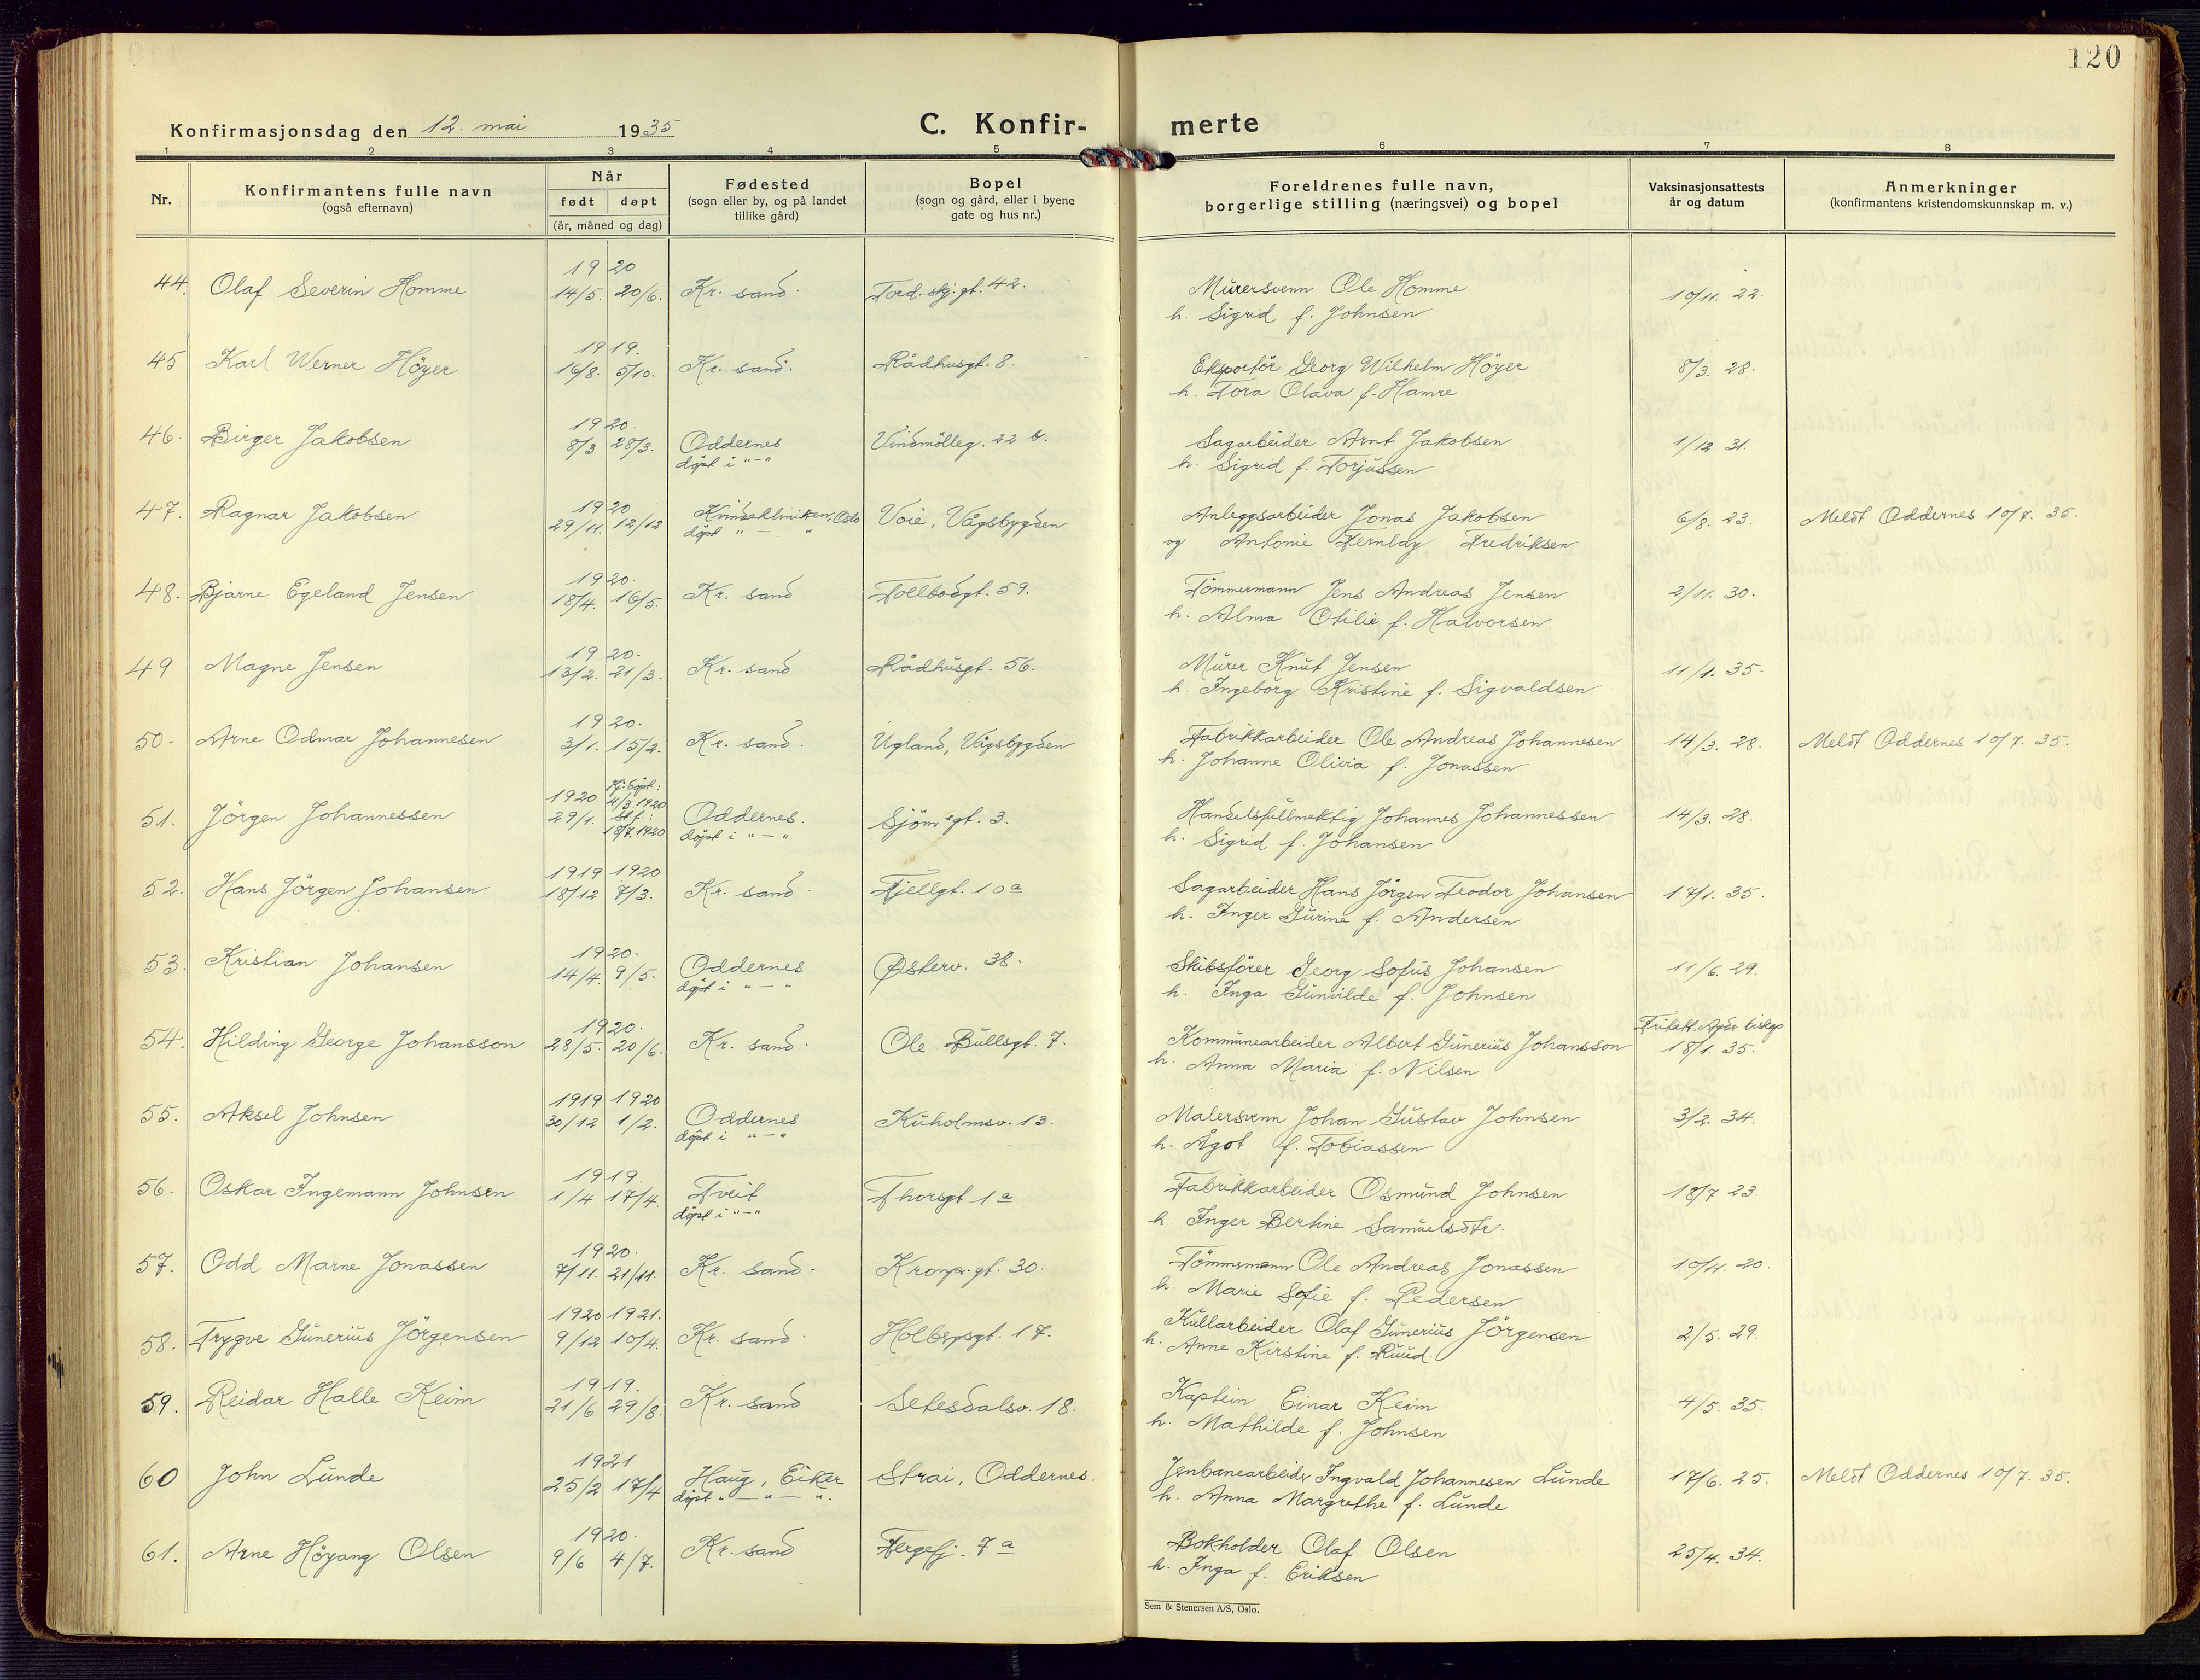 120
Konfirmasjonsdag den 12. mai 1935 C. Konfir- merte
1 2 3 4 5 6 7 8
Nr. Konfirmantens fulle navn (også efternavn) Når født døpt (år, måned og dag) Fødested (sogn eller by, og på landet tillike gård) Bopel (sogn og gård, eller i byene gate og hus nr.) Foreldrenes fulle navn, borgerlige stilling (næringsvei) og bopel Vaksinasjonsattests år og datum Anmerkninger (konfirmantens kristendomskunnskap m. v.)
1920
44. Olaf Severin Homme 14/5. 20/6. Kr. sand. Tord. skj. gt. 42. Murersvenn Ole Homme 10/11. 22.
h. Sigrid f. Johnsen
1919.
45 Karl Werner Höyer 16/8. 5/10. Kr. sand. Rådhusgt. 8. Eksportör Georg Wilhelm Höyer 8/3. 28.
h. Tora Olava f. Hamre
1920.
46. Birger Jakobsen 8/3 28/3. Oddernes Vindmölleg. 22 b. Sagarbeider Arnt Jakobsen 1/12 31.
döpt i " - " h. Sigrid f. Torjussen
1920
47. Ragnar Jakobsen 29/11. 12/12 Kvindeklinikken, Oslo Voie, Vågsbygden Anleggsarbeider Jonas Jakobsen 6/8. 23. Meldt Oddernes 10/7. 35.
döpt " - " og Antonie Fredriksen
1920.
48. Bjarne Egeland Jensen 18/4. 16/5. Kr. sand Tollbodgt. 59. Tömmermann Jens Andreas Jensen 2/11. 30.
h. Alma Otilie f. Halvorsen
1920.
49 Magne Jensen 13/2. 21/3. Kr. sand Rådhusgt. 56. Murer Knut Jensen 11/1. 35.
h. Ingeborg Kristine f. Sigvaldsen
1920.
50. Arne Odmar Johannesen 3/1. 15/2. Kr. sand. Ugland, Vågsbygden Fabrikkarbeider Ole Andreas Johannesen 14/3. 28. Meldt Oddernes 10/7. 35.
h. Johanne Olivia f. Jonassen
1920 Hj. döpt: 4/3.1920
51. Jörgen Johannessen 29/1. St.f.: 18/7.1920 Oddernes. Sjömsgt. 3. Handelsfullmektig Johannes Johannessen 14/3. 28.
döpt i " - " h. Sigrid f. Johansen
1919 1920
52. Hans Jörgen Johansen 18/12 7/3. Kr. sand. Fjellgt. 10a Sagarbeider Hans Jörgen Teodor Johansen 17/1. 35.
h. Inger Gurine f. Andersen
1920.
53. Kristian Johansen 14/4. 9/5. Oddernes Østerv. 38. Skibsförer Georg Sofus Johansen 11/6. 29.
döpt i " - " h. Inga Gunvilde f. Johnsen
1920.
54. Hilding George Johansson 28/5. 20/6. Kr. sand. Ole Bullsgt. 7. Kommunearbeider Albert Gunerius Johansson Fritatt. Agder biskop 18/1. 35.
h. Anna Maria f. Nilsen
1919 1920
55. Aksel Johnsen 30/12 1/2. Oddernes Kuholmsv. 13. Malersvenn Johan Gustav Johnsen 3/2. 34.
döpt i " - " h. Ågot f. Tobiassen
1919.
56. Oskar Ingemann Johnsen 1/4 17/4. Tveit Thorsgt 1a Fabrikkarbeider Osmund Johnsen 18/7 23.
döpt i " - " h Inger Bertine Samuelsdtr.
1920.
57. Odd Marne Jonassen 7/11. 21/11. Kr. sand. Kronpr. gt. 30. Tömmermann Ole Andreas Jonassen 10/11. 20.
h. Marie Sofie f. Pedersen
1920 1921.
58. Trygve Gunerius Jörgensen 9/12 10/4. Kr. sand. Holbergsgt. 17. Kullarbeider Olaf Gunerius Jörgensen 2/5. 29.
h. Anne Kirstine f. Ruud.
1919.
59. Reidar Halle Keim 21/6 29/8. Kr. sand Setesdalsv. 18. Kaptein Einar Keim 4/5. 35.
h. Mathilde f. Johnsen
1921
60 John Lunde 25/2 17/4 Haug, Eiker Strai, Oddernes. Jernbanearbeider Ingvald Johannesen Lunde 17/6. 25. Meldt Oddernes 10/7. 35.
döpt " - " - ". h. Anna Margrethe f. Lunde
1920.
61. Arne Höyang Olsen 9/6 4/7. Kr. sand Fergefj. 7a Bokholder Olaf Olsen 25/4. 34.
h. Inga f. Eriksen
Sem & Stenersen A/S, Oslo.